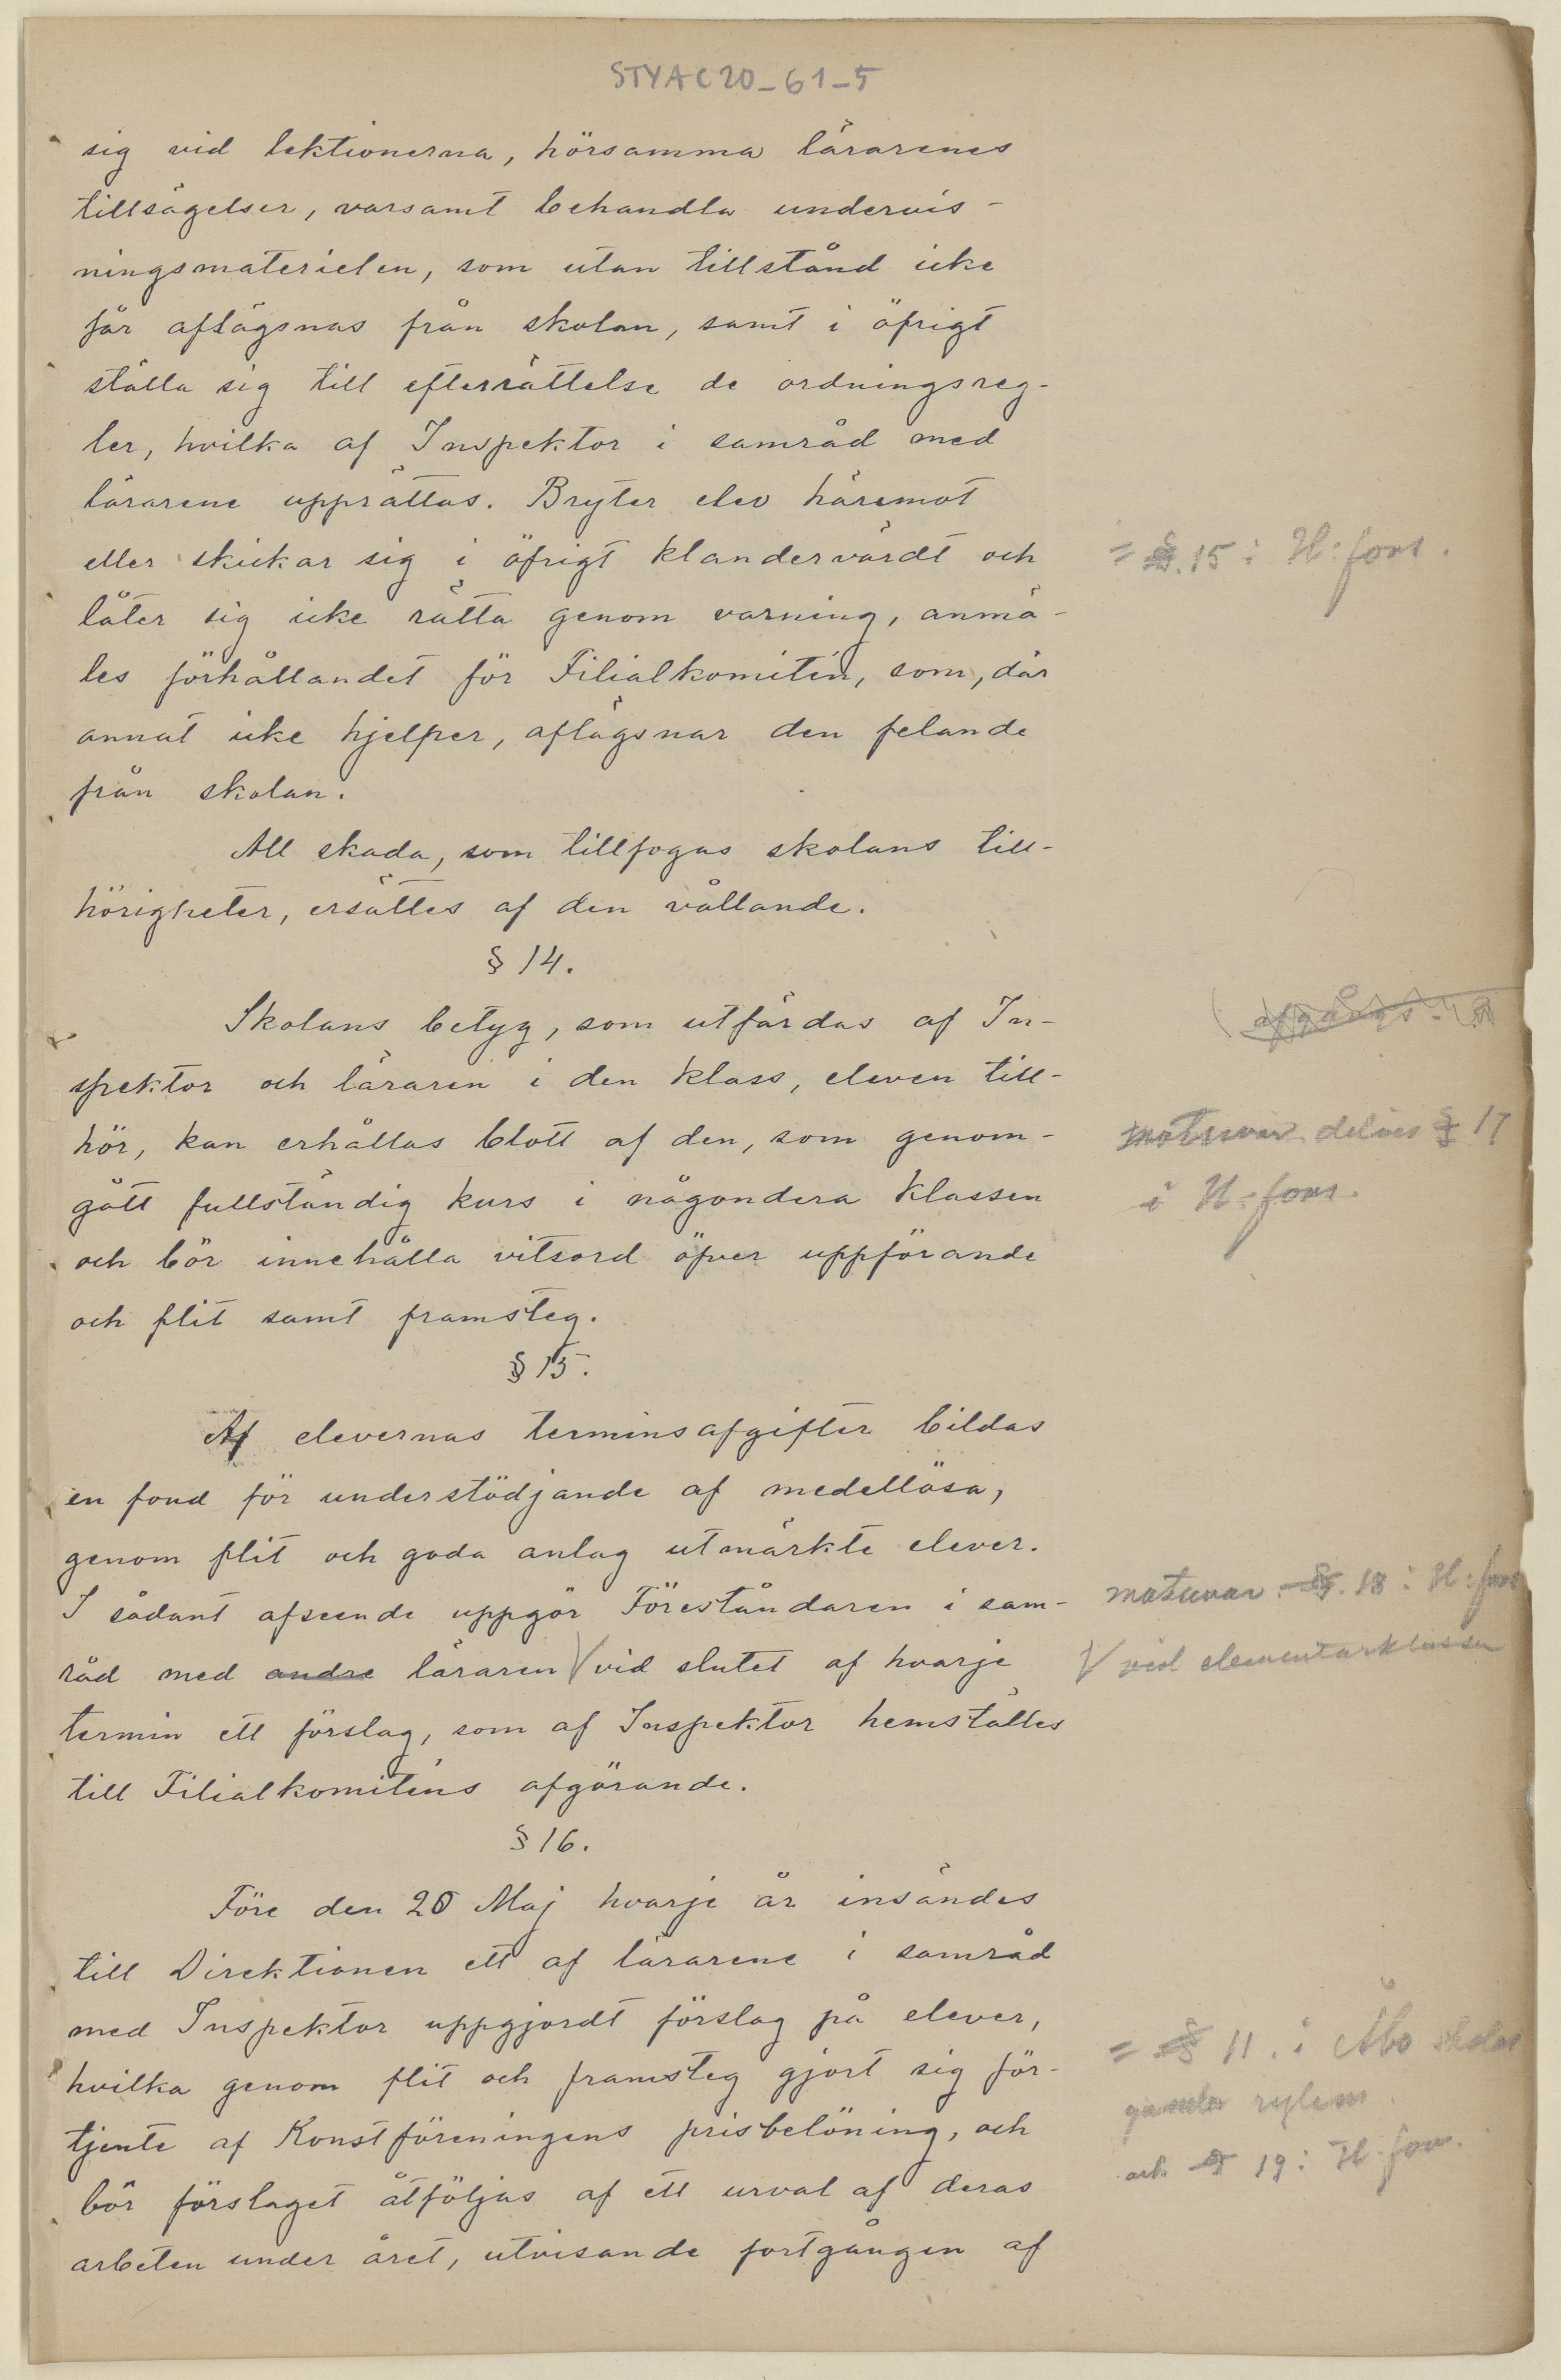 STYAC20_61_5
sig vid lektionerna, hörsamma lärarenes
tillsägelser, varsamt behandla undervis-
ningsmaterielen, som utan tillstånd icke
får aflägsnas från skolan, samt i öfrigt
ställa sig till efterrättelse de ordningsreg-
ler, hvilka af Inspektor i samråd med
lärarene upprättas. Bryter elev häremot
eller skickar sig i öfrigt klandervärdt och
= §. 15 i H:fors.
låter sig icke rätta genom varning, anmä-
les förhållandet för Filialkomitén, som, där
annat icke hjelper, aflägsnar den felande
från skolan.
All skada, som tillfogas skolans till-
hörigheter, ersättes af den vållande.
§ 14.
Skolans betyg, som utfärdas af In-
afgångs-
spektor och läraren i den klass, eleven till-
hör, kan erhållas blott af den, som genom-
motsvar. delvis § 17
gått fullständig kurs i någondera klassen
i H:fors.
och bör innehålla vitsord öfver uppförande
och flit samt framsteg.
§ 15.
Af elevernas terminsafgifter bildas
en fond för understödjande af medellösa,
genom flit och goda anlag utmärkte elever.
I sådant afseende uppgör Föreståndaren i sam-
motsvar. §. 18 i H:fors
råd med andre läraren √ vid slutet af hvarje
√ vid elementarklassen
termin ett förslag, som af Inspektor hemställes
till Filialkomiténs afgörande.
§ 16.
Före den 20 Maj hvarje år insändes
till Direktionen ett af lärarene i samråd
med Inspektor uppgjordt förslag på elever,
= § 11. i Åbo skolas
hvilka genom flit och framsteg gjort sig för-
gamla
tjente af Konstföreningens prisbelöning, och
och § 19 i H:fors.
bör förslaget åtföljas af ett urval af deras
arbeten under året, utvisande fortgången af